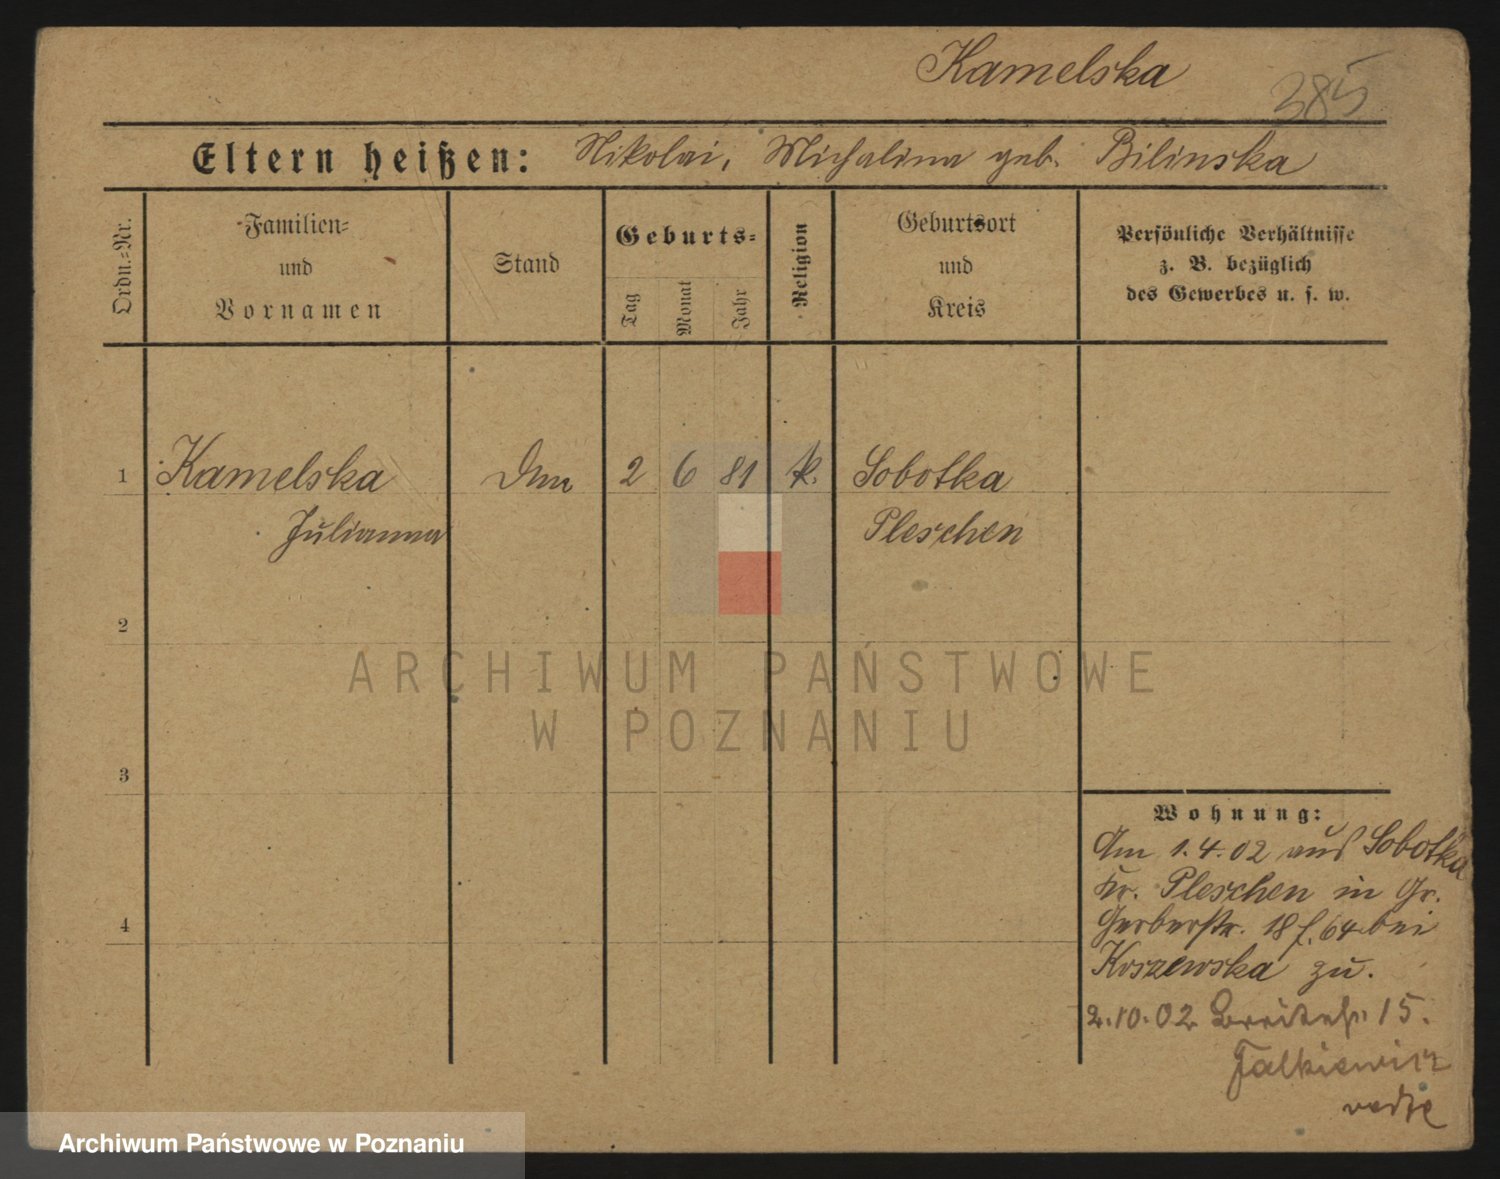 Kamelska
385
Eltern heißen: Nikolai, Michalina geb. Bilinska
Ordn.=Nr.
Familien=
und
Vornamen
Stand
Geburts=
Tag
Monat
Jahr
Religion
Geburtsort
und
Kreis
Persönliche Verhältnisse
z. B. bezüglich
des Gewerbes u. s. w.
1 Kamelska 2 6 81 k. Sobotka
Julianna Pleschen
2
3
4
Wohnung:
Am 1.4.02 aus Sobotka
Kr. Pleschen in Gr.
Gerberstr. 18 f. 64 bei
Koszewska zu.
2.10.02 Breitestr. 15.
Falkiewicz
ARCHIWUM PAŃSTWOWE
W POZNANIU
Archiwum Państwowe w Poznaniu